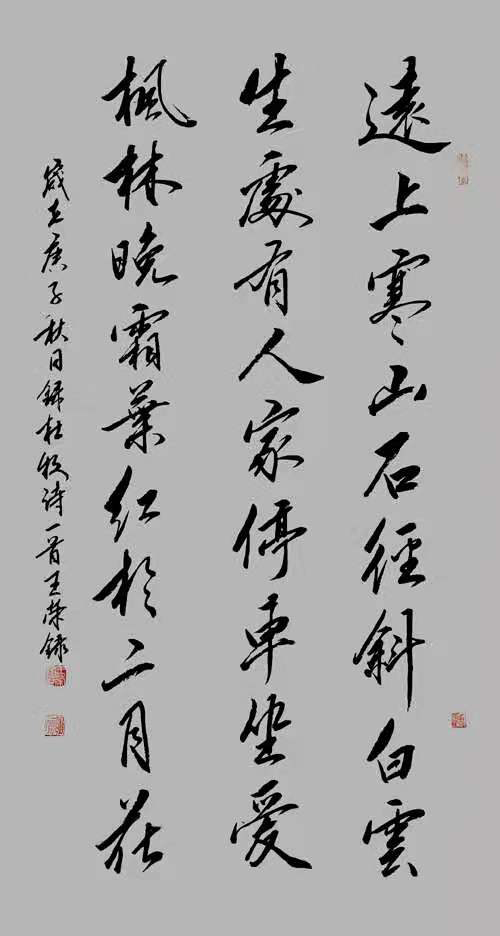 遠上寒山石徑斜白雲
生處有人家停車坐愛
楓林晚霜葉紅於二月花
歲在庚子秋日錄杜牧詩一首王榮錄